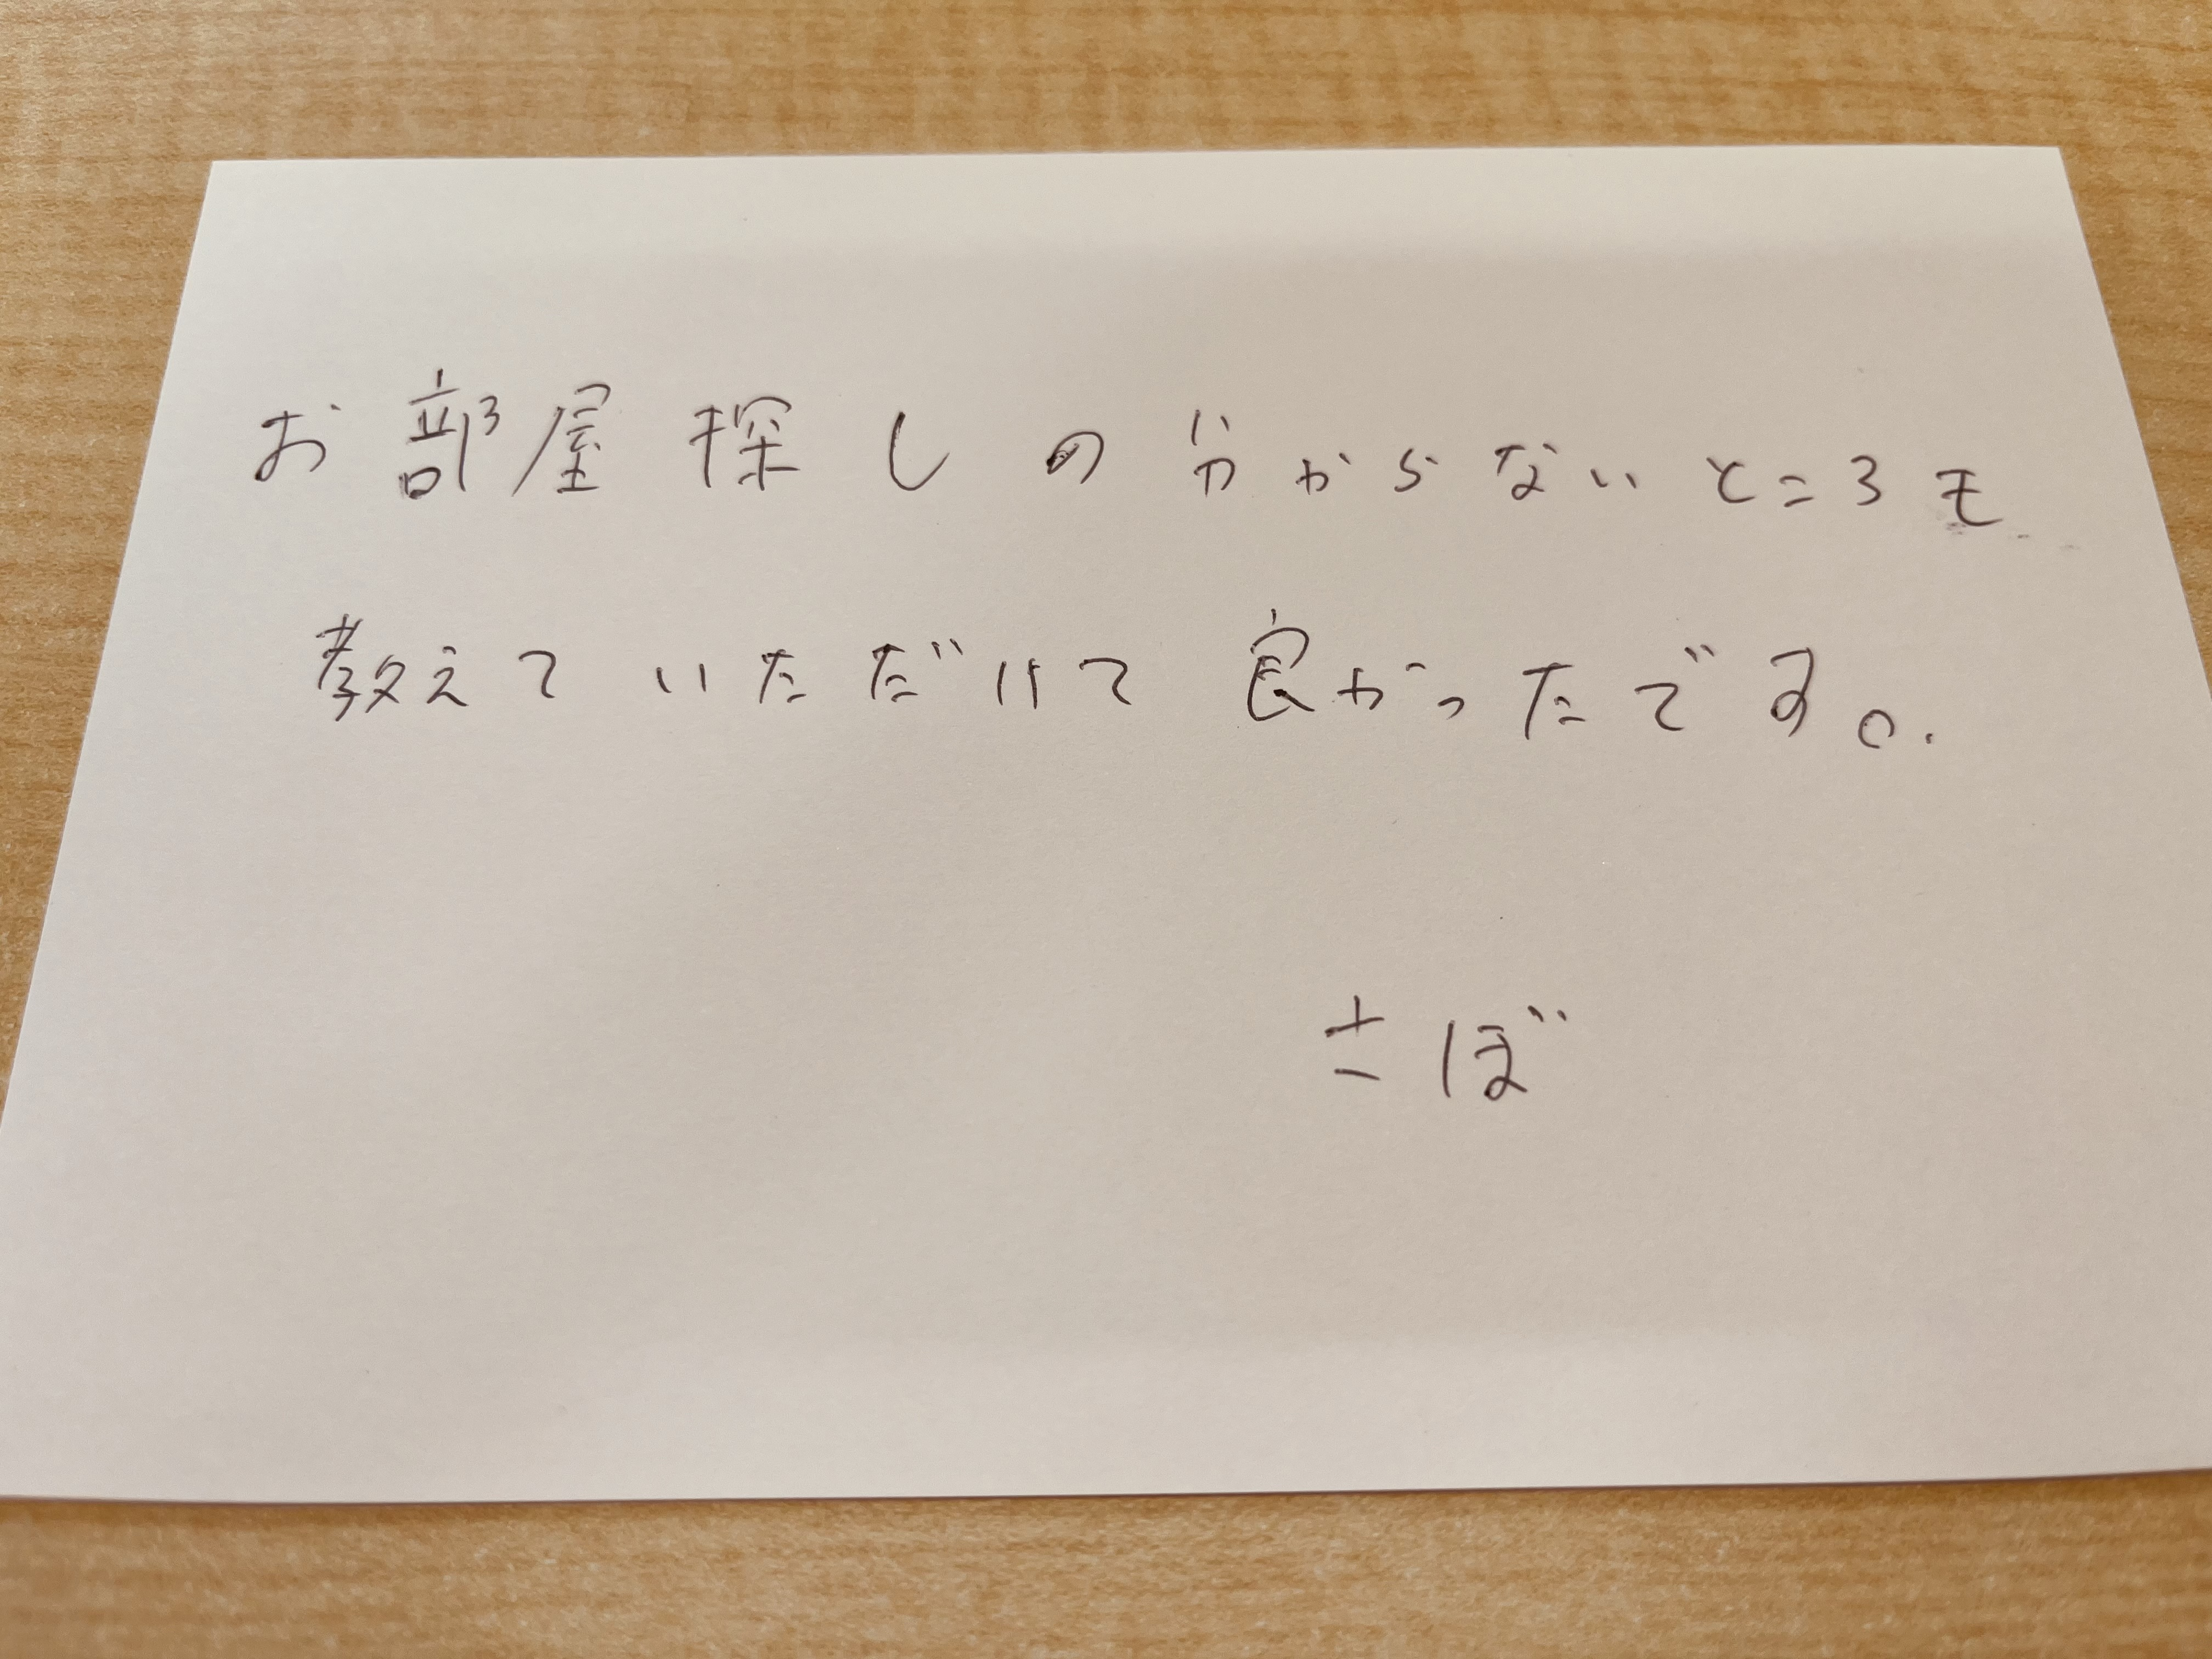 お部屋探しの分からないところも
教えていただけて良かったです。
さぼ